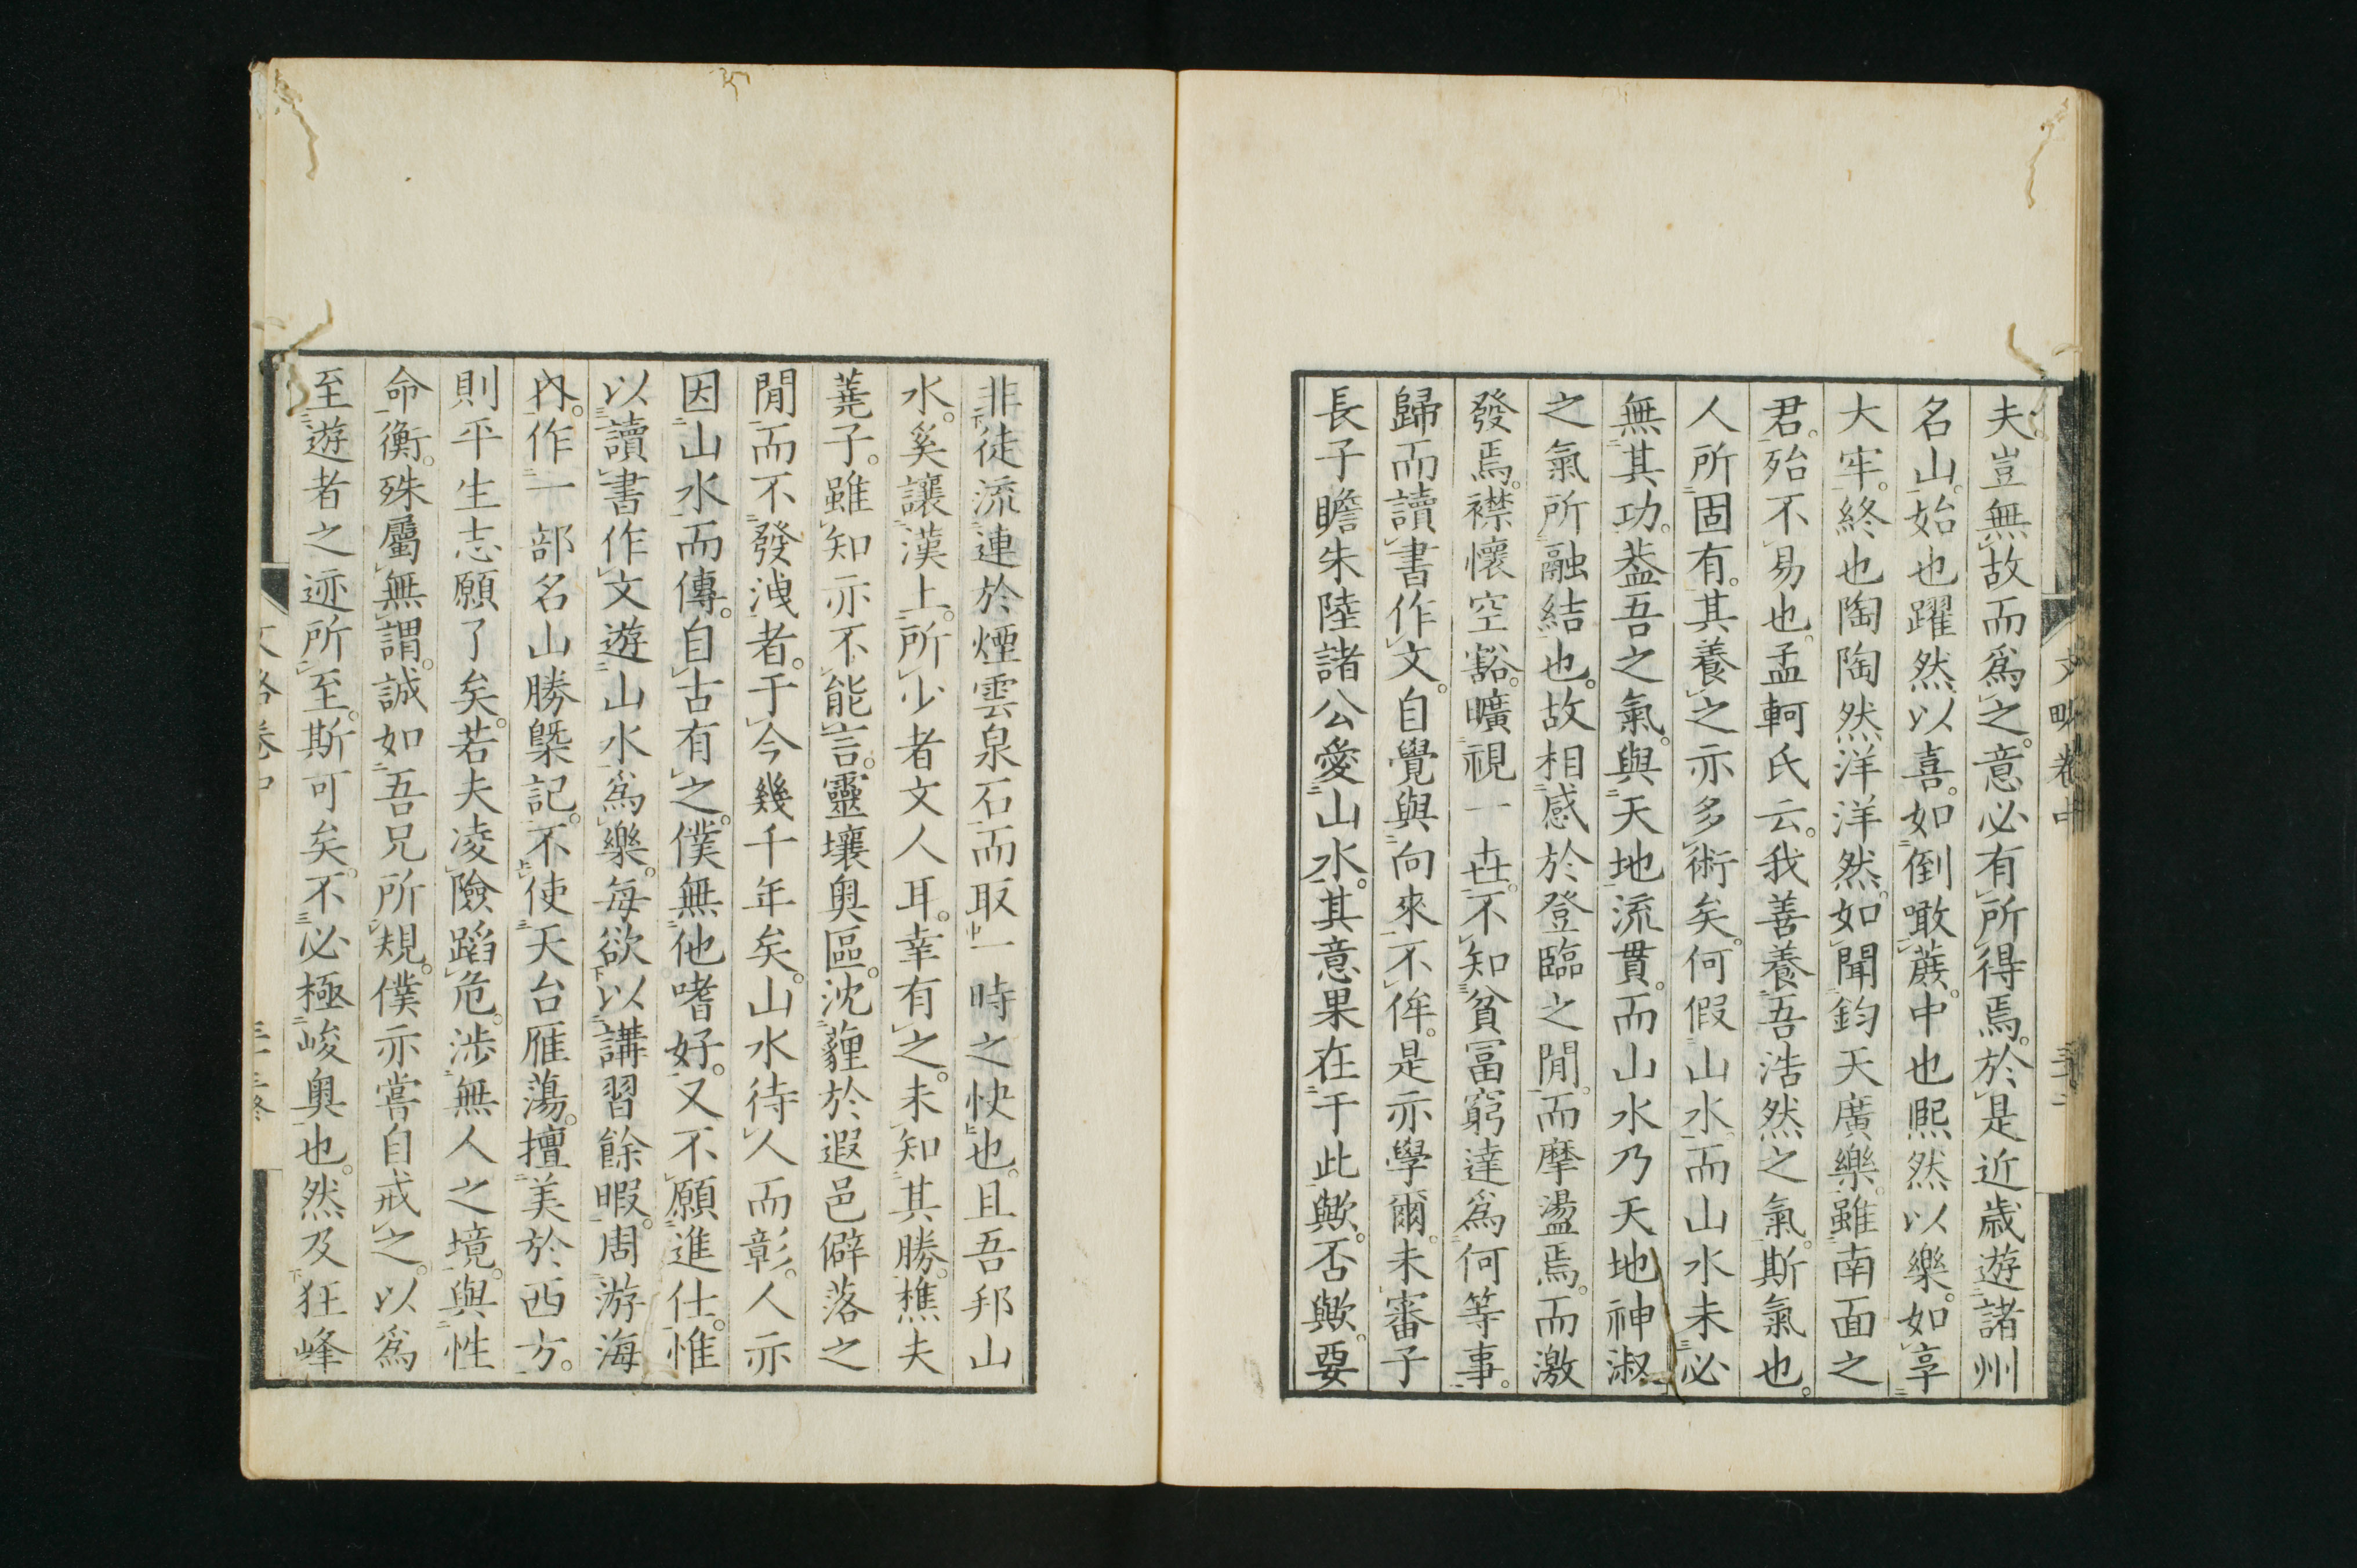 夫。豈無故而爲之。意必有所得焉。於是近歲遊諸州
名山。始也躍然以喜。如倒噉蔗。中也熈然以樂。如享
大牢。終也陶陶然洋洋然。如聞鈞天廣樂。雖南面之
君。殆不易也。孟軻氏云。我善養吾浩然之氣。斯氣也。
人所固有。其養之亦多術矣。何假山水。而山水未必
無其功。葢吾之氣。與天地流貫。而山水乃天地神淑
之氣所融結也。故相感於登臨之閒。而摩盪焉。而激
發焉。襟懷空豁。曠視一世。不知貧冨窮達爲何等事。
歸而讀書作文。自覺與向來不侔。是亦學爾。未審子
長子瞻朱陸諸公愛山水。其意果在于此歟。否歟。要
非徒流連於煙雲泉石而取一時之快也。且吾邦山
水。奚讓漢上。所少者文人耳。幸有之。未知其勝。樵夫
蕘子。雖知亦不能言。靈壤奥區。沈薶於遐邑僻落之
閒而不發洩者。于今幾千年矣。山水待人而彰。人亦
因山水而傳。自古有之。僕無他嗜好。又不願進仕。惟
以讀書作文遊山水爲樂。每欲以講習餘暇。周游海
內。作一部名山勝槩記。不使天台雁蕩。擅美於西方。
則平生志願了矣。若夫凌險蹈危。涉無人之境。與性
命衡。殊屬無謂。誠如吾兄所規。僕亦嘗自戒之。以爲
至遊者之迹所至。斯可矣。不必極峻奥也。然及狂峰
文畧卷中